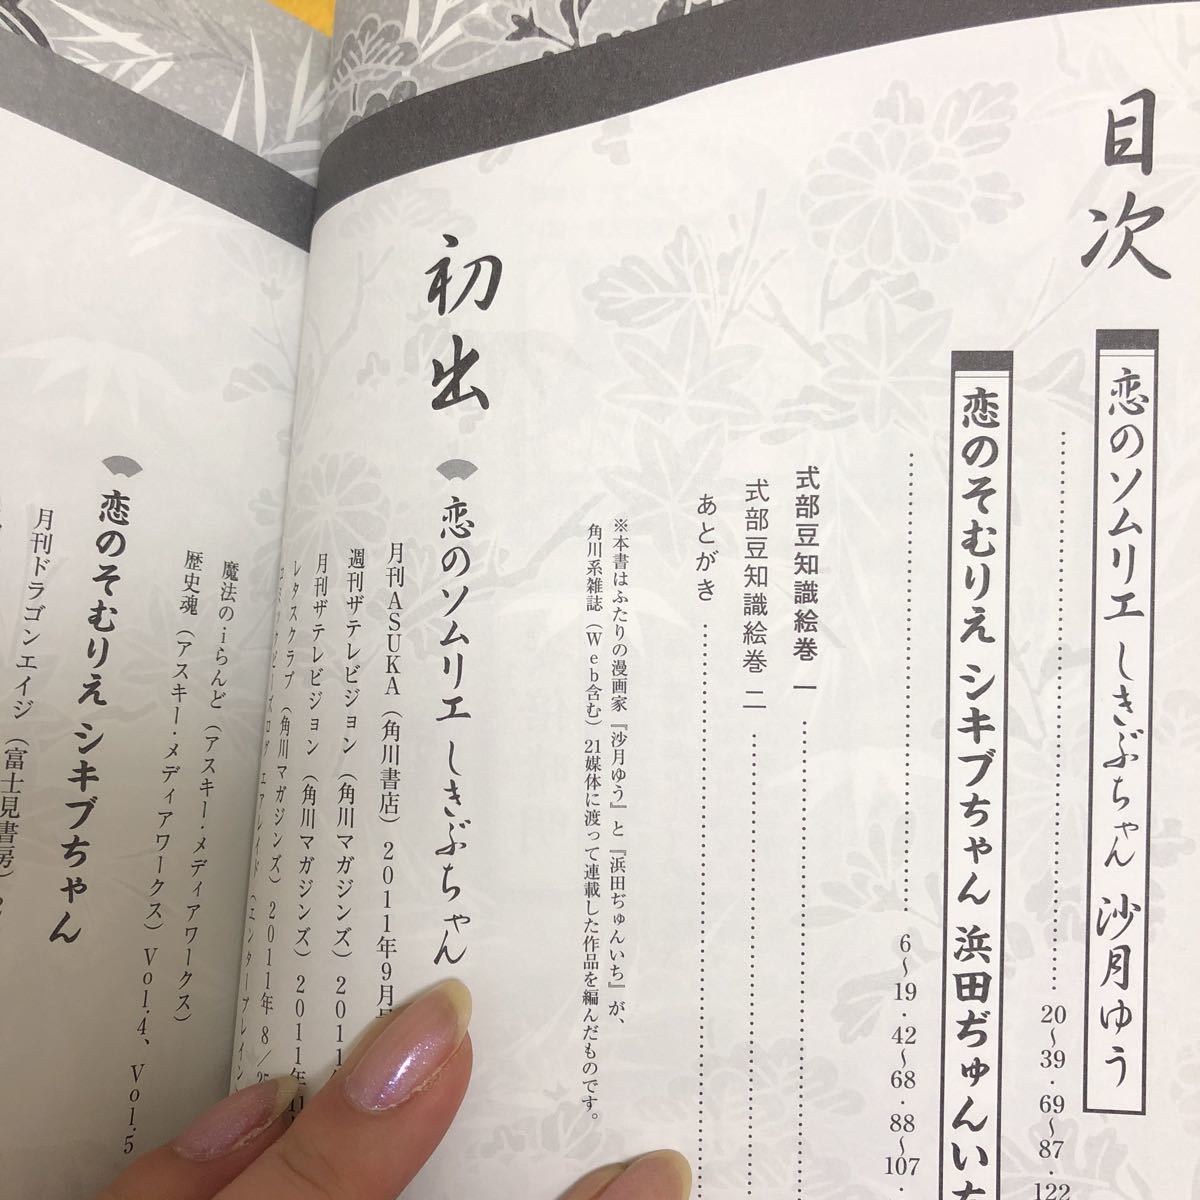 目次
恋のソムリエ しきぶちゃん 沙月ゆう
20〜39・69〜87・122
恋のそむりえ シキブちゃん 浜田ぢゅんいち
6〜19・42〜68・88〜107・
式部豆知識絵巻 一
式部豆知識絵巻 二
あとがき
※本書はふたりの漫画家『沙月ゆう』と『浜田ぢゅんいち』が、
角川系雑誌（Web含む）21媒体に渡って連載した作品を編んだものです。
初出
恋のソムリエ しきぶちゃん
月刊ASUKA（角川書店）2011年9月
週刊ザテレビジョン（角川マガジンズ）2011
月刊ザテレビジョン（角川マガジンズ）2011年
レタスクラブ（角川マガジンズ）2011年 8／25
エアレイド（エンターブレイン
魔法のiらんど（アスキー・メディアワークス）
歴史魂（アスキー・メディアワークス）Vol.4、Vol.5
恋のそむりえ シキブちゃん
月刊ドラゴンエイジ（富士見書房）